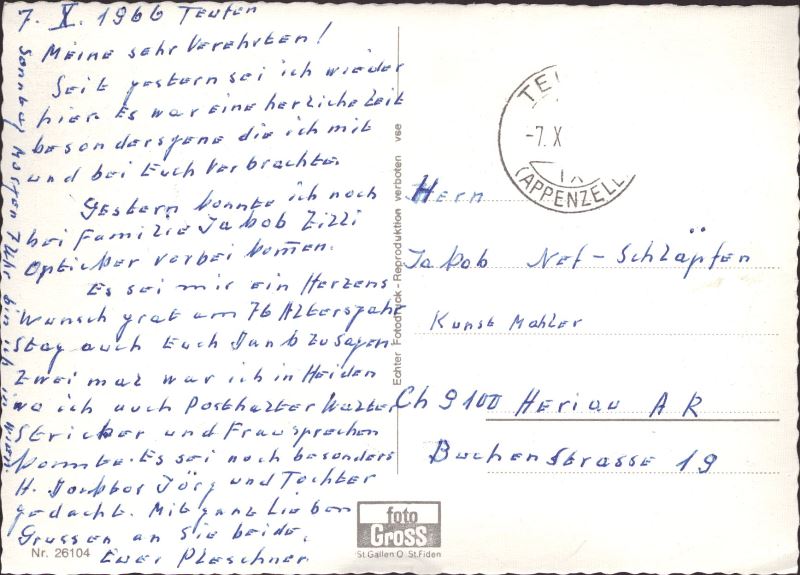 7. X. 1966 Teufen
Meine sehr Verehrten!
Seit gestern sei ich wieder
hier. Es war eine herzliche Zeit
besonders gene die ich mit
und bei Euch verbrachte.
Gestern konnte ich noch
bei Familie Jakob Zilli
Opticker vorbei kom̄en.
Es sei mir ein Herzens
Wunsch grat am 76 Altersjahr
Stag auch Euch Dank zu sagen
Zwei mal war ich in Heiden
wo ich auch Posthalter Walter
Stricker und Frau sprechen
konnte. Es sei noch besonders
H. Jörg und Tochter
gedacht. Mit ganz Lieben
Grussen an Sie beide.
Euer Pleschner
Sonntag Morgen 7 Uhr bin ich in Wien
Echter Fotodruck - Reproduktion verboten vse
TEU
-7. X
IX
(APPENZELL
Hern
Jakob Nef-Schläpfen
Kunst Mahler
Ch 9100 Herisau AR
Buchenstrasse 19
foto
Gross
St.Gallen O St.Fiden
Nr. 26104